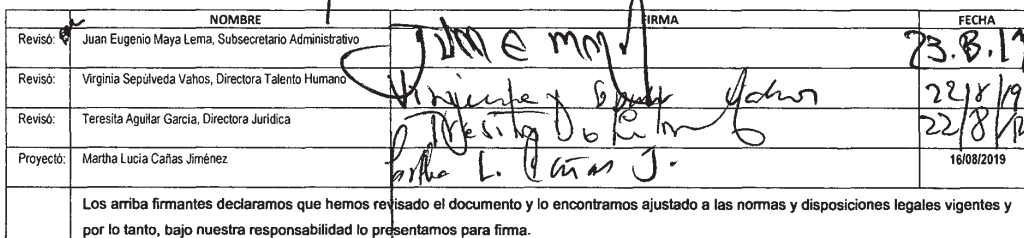 NOMBRE FIRMA FECHA
Revisó: Juan Eugenio Maya Lema, Subsecretario Administrativo 23.8.19
Revisó: Virginia Sepúlveda Vahos, Directora Talento Humano 22/8/19
Revisó: Teresita Aguilar García, Directora Jurídica Teresita 22/8/19
Proyectó: Martha Lucia Cañas Jiménez Martha L. Cañas J. 16/08/2019
Los arriba firmantes declaramos que hemos revisado el documento y lo encontramos ajustado a las normas y disposiciones legales vigentes y
por lo tanto, bajo nuestra responsabilidad lo presentamos para firma.